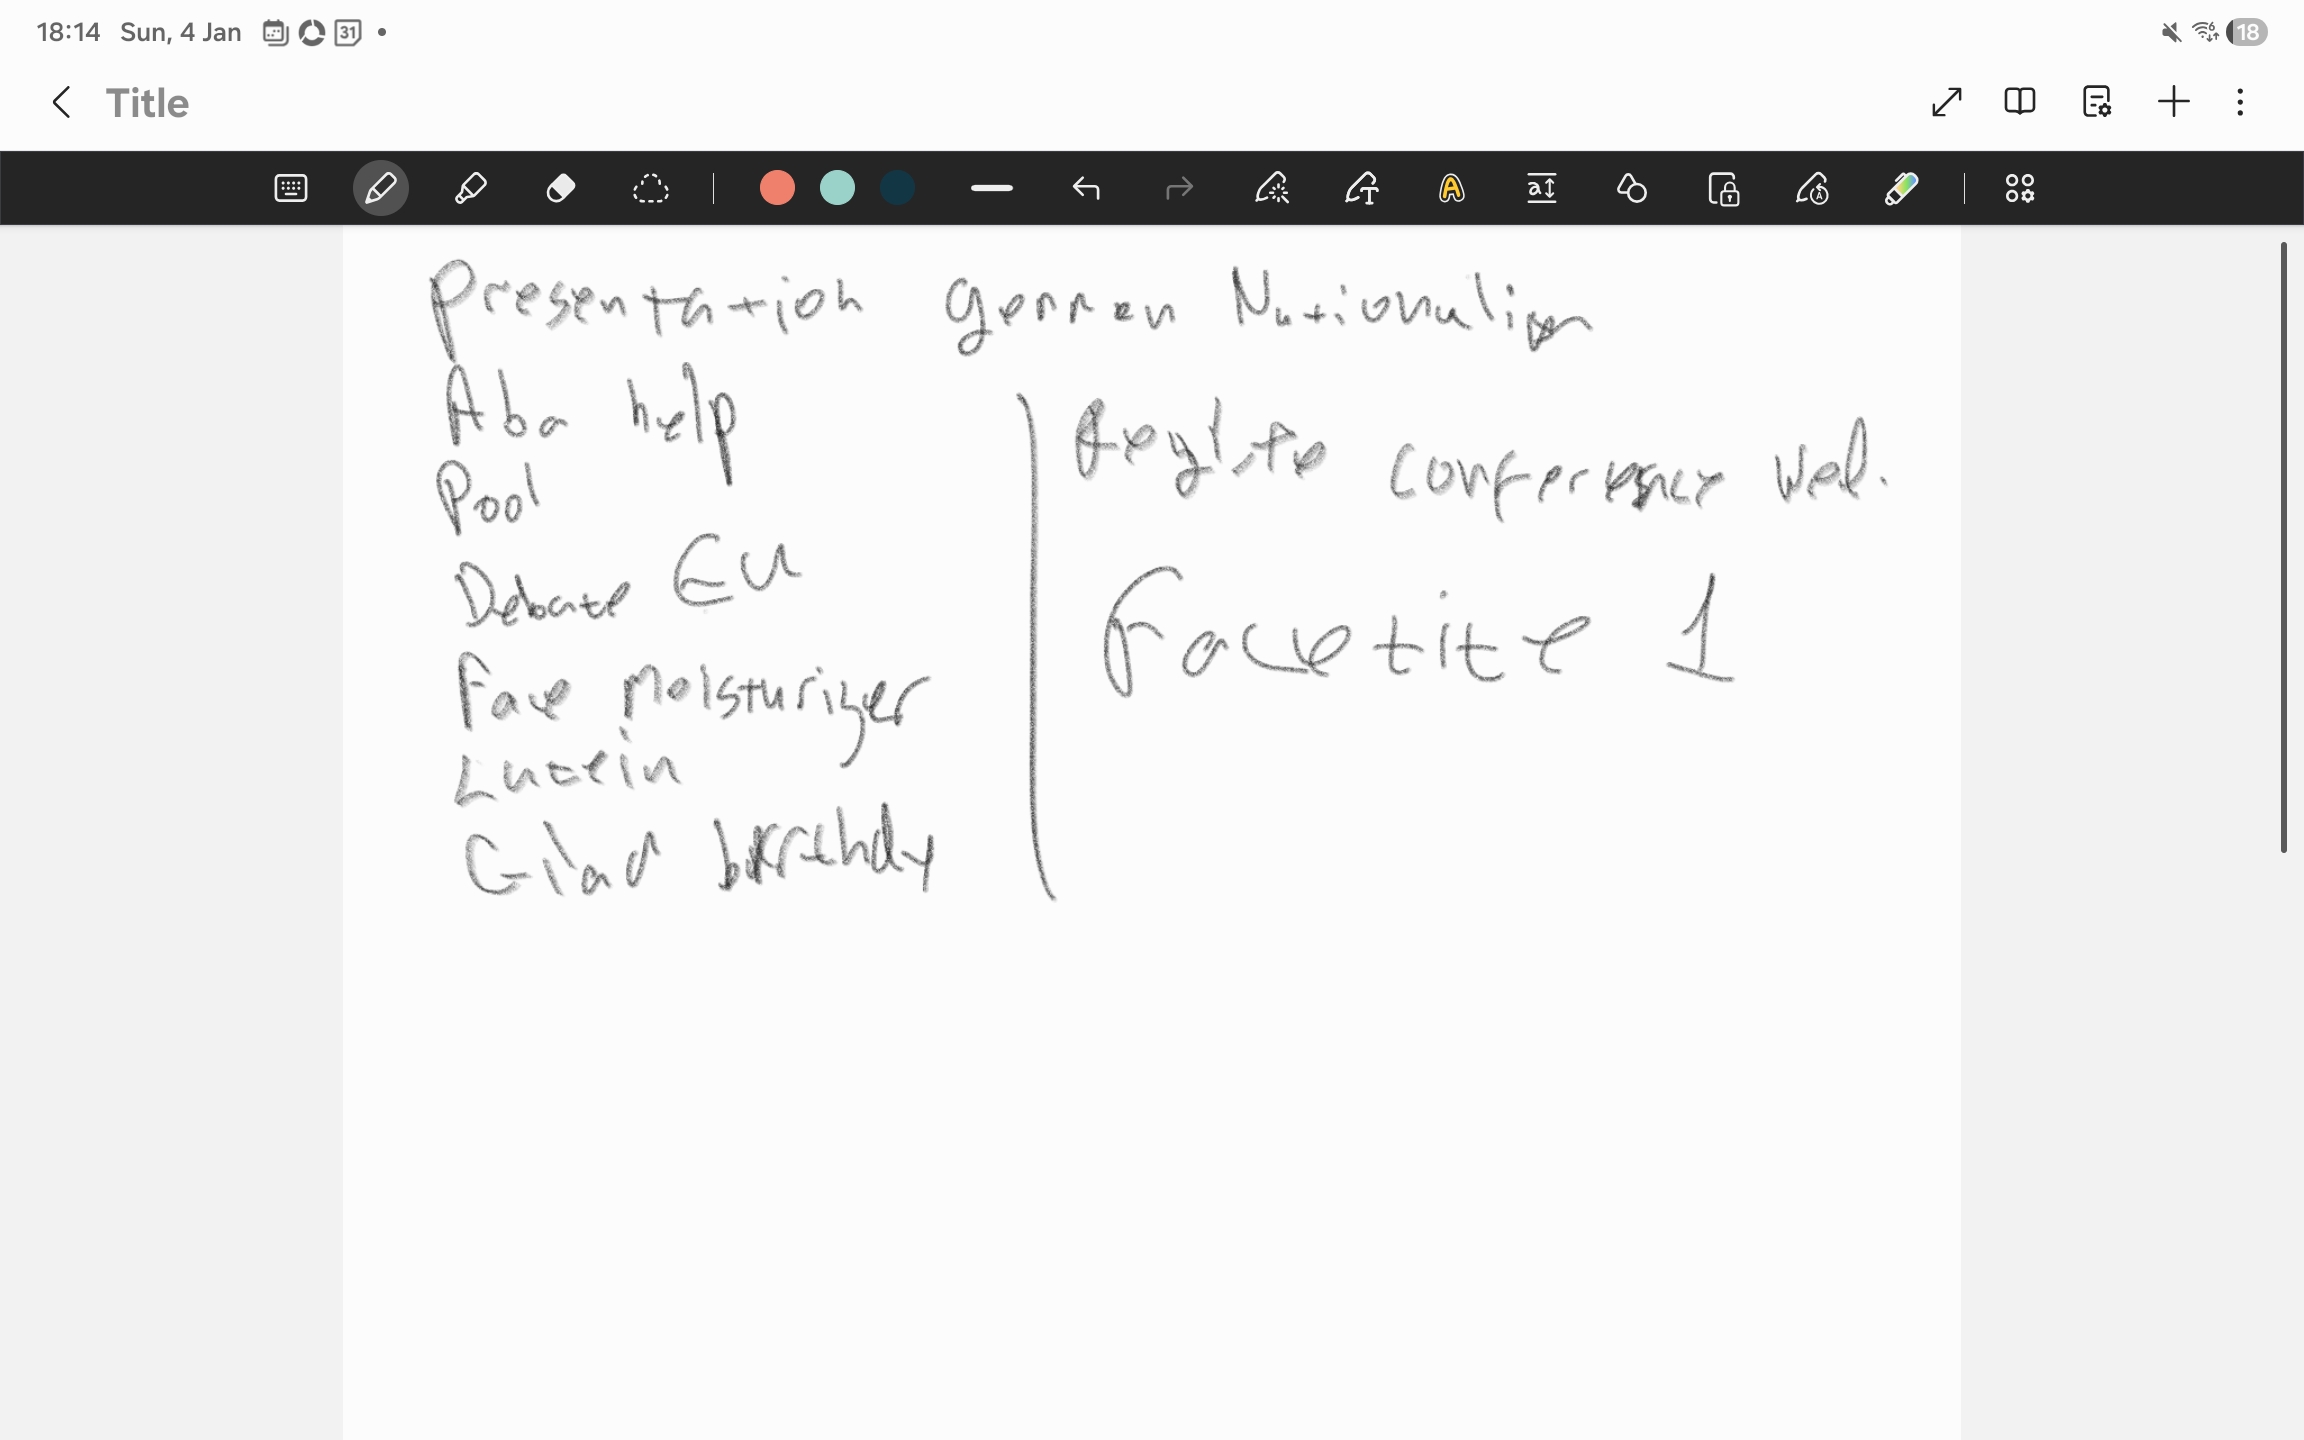 18:14 Sun, 4 Jan 31 18
Title
Presentation German Nationalism
Aba help
Pool
Debate EU
Face Moisturizer
Lutein
Gilad birthdy
conference Wed.
Facetite 1